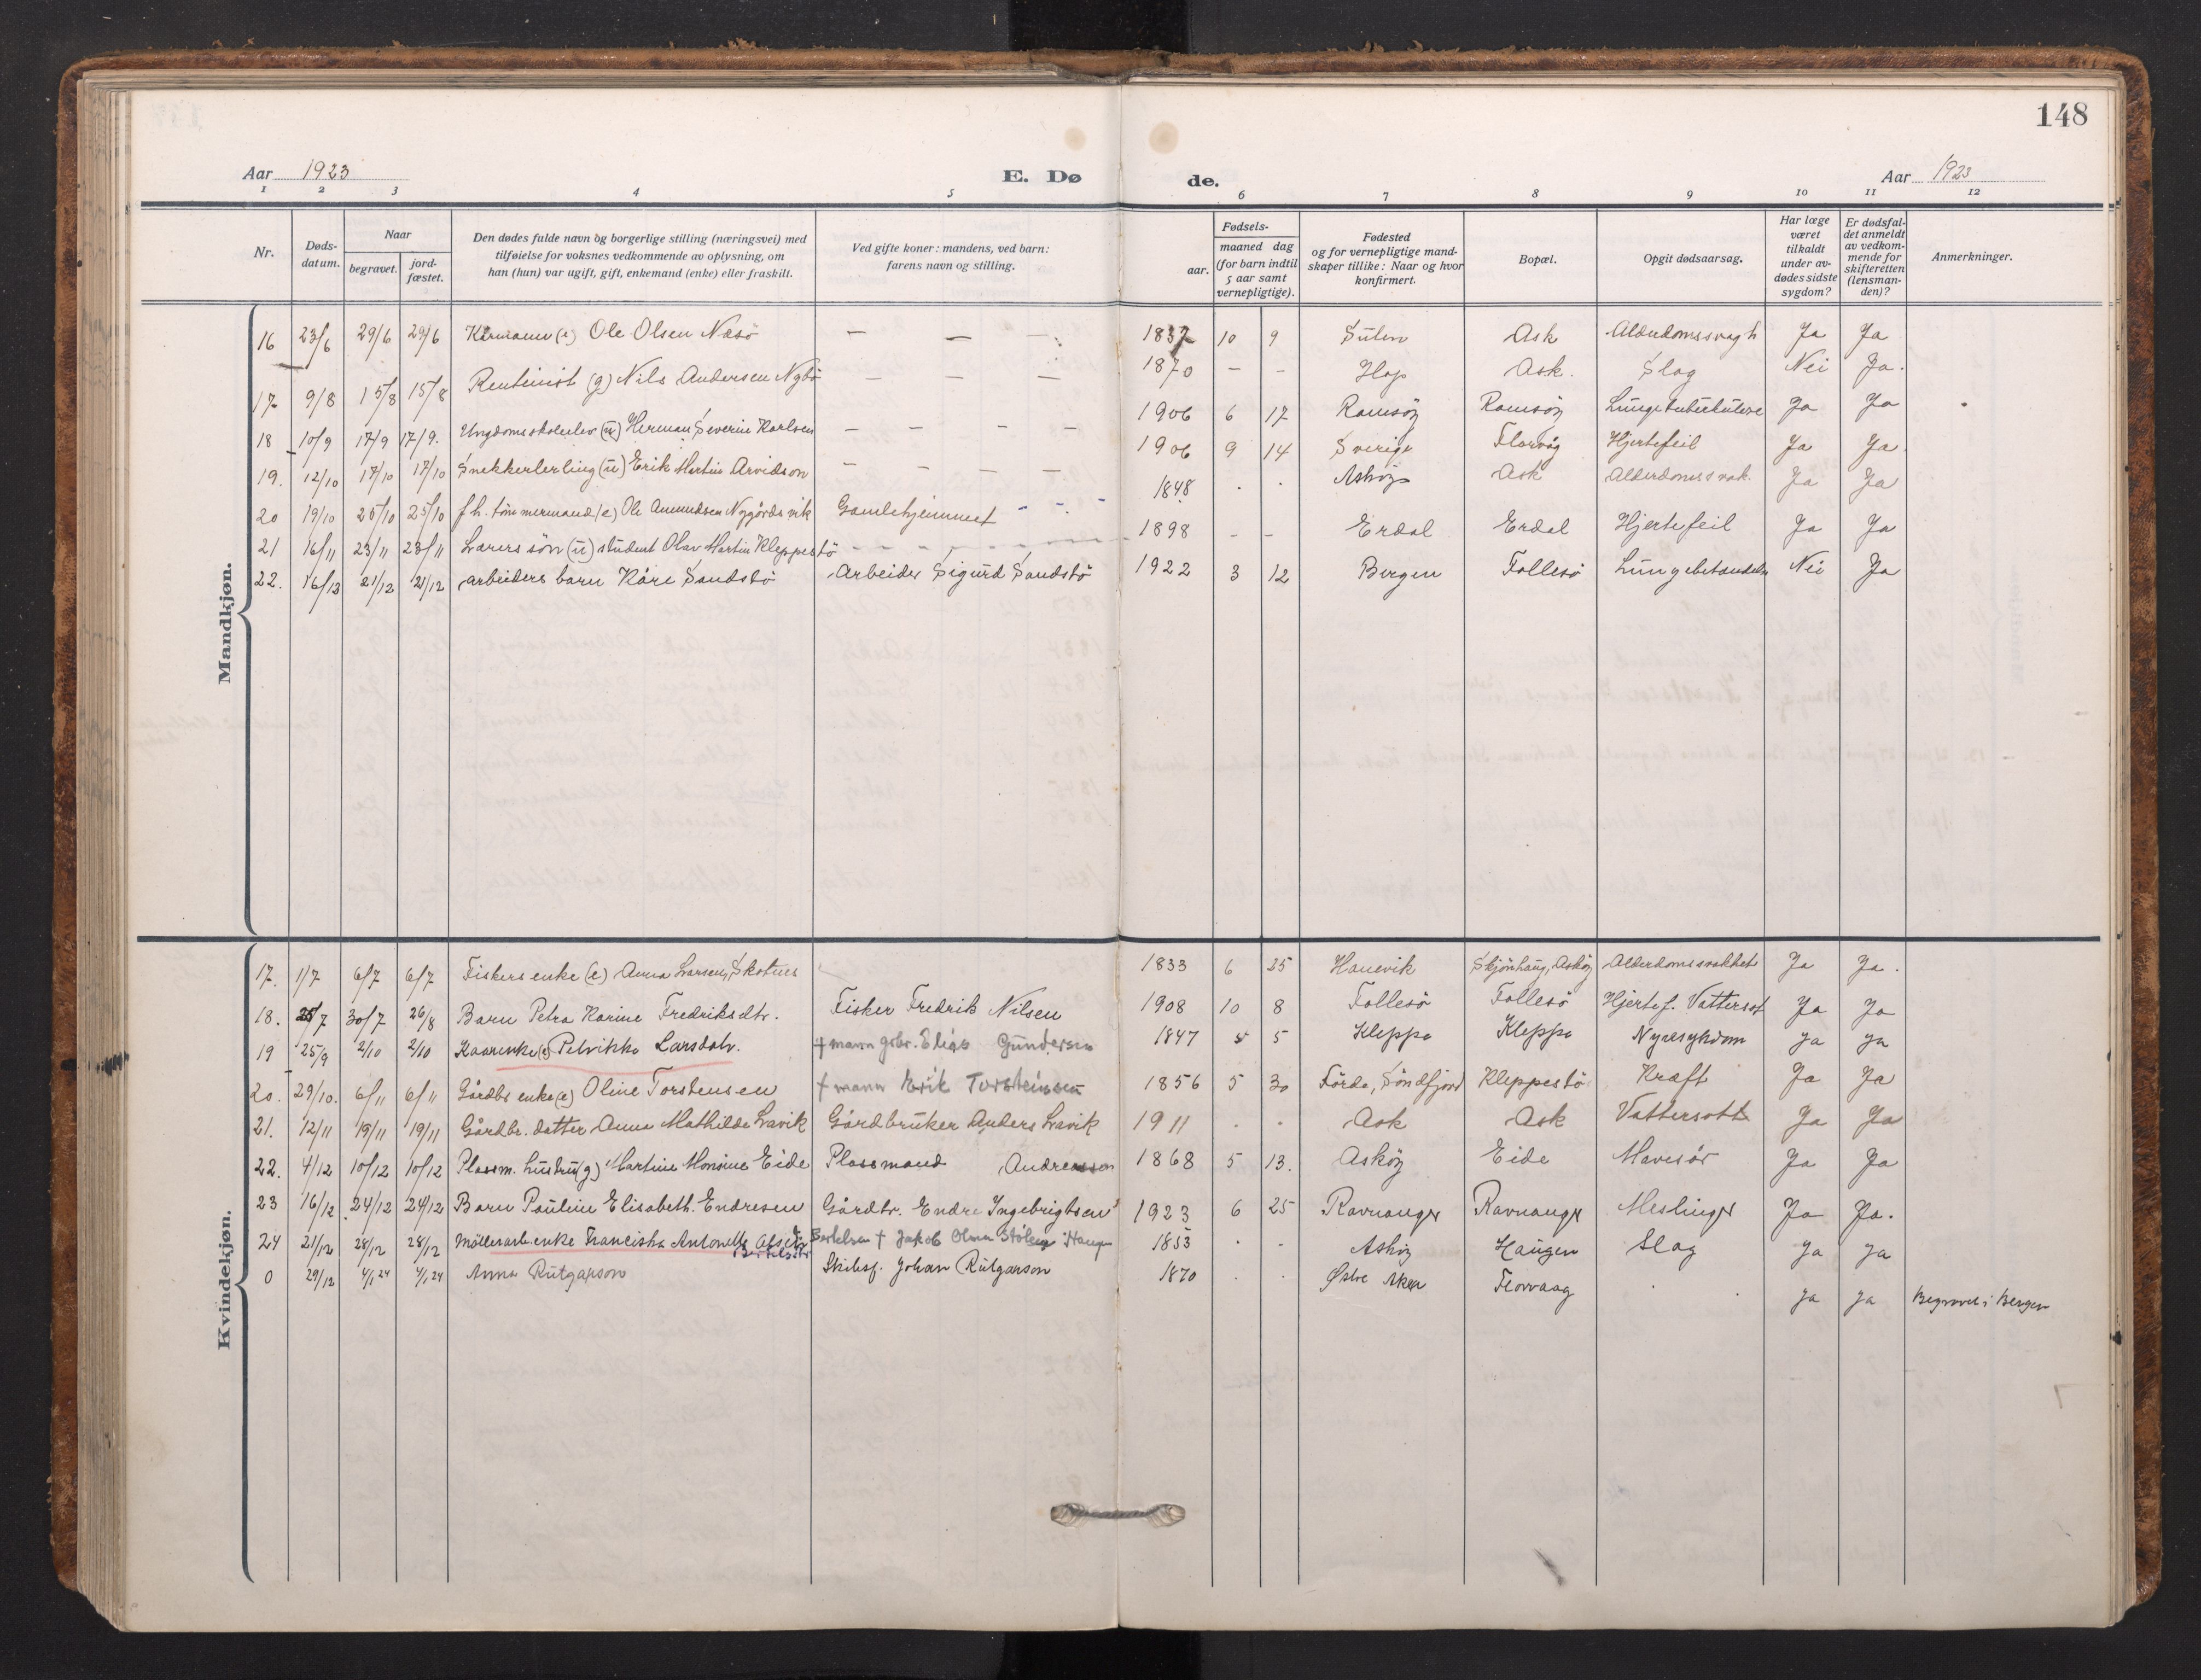 148
Aar 1923
E. Dø
de.
Aar 1923
1 2 3 4 5 6 7 8 9 10 11 12
Nr.
Døds-
datum.
Naar
begravet.
jord-
fæstet.
Den dødes fulde navn og borgerlige stilling (næringsvei) med
tilføielse for voksnes vedkommende av oplysning, om
han (hun) var ugift, gift, enkemand (enke) eller fraskilt.
Ved gifte koner: mandens, ved barn:
farens navn og stilling.
Fødsels-
aar.
maaned dag
(for barn indtil
5 aar samt
vernepligtige).
Fødested
og for vernepligtige mand-
skaper tillike: Naar og hvor
konfirmert.
Bopæl.
Opgit dødsaarsag.
Har læge
været
tilkaldt
under av-
dødes sidste
sygdom?
Er dødsfal-
det anmeldt
av vedkom-
mende for
skifteretten
(lensman-
den)?
Anmerkninger.
Mandkjøn.
16 23/6 29/6 29/6 Kårmann (e) Ole Olsen Næsö — — — 1837 10 9 Sulen Ask Alderdomssvagh Ja Ja
17 9/8 15/8 15/8 Rentenist (g) Nils Andersen Nybö — — — 1870 — — Hop Ask. Slag Nei Ja.
18 10/9 17/9 17/9. Ungdomsskolelev (u) Herman Severin Karlsen — — — — 1906 6 17 Ramsöy Ramsöy Lungetuberkulose Ja Ja
19. 12/10 17/10 17/10 Snekkerlerling (u) Erik Martin Arvidson — — — — 1906 9 14 Sverige Florvåg Hjertefeil Ja Ja.
20 19/10 25/10 25/10 f.h. tömmermand (e) Ole Amundsen Nygårdsvik Gamlehjemmet - - - 1848 . . Asköy Ask Alderdomssvak. Ja Ja
21 16/11 23/11 23/11 Lærers sön (u) student Olav Martin Kleppestö — — — 1898 - - Erdal Erdal Hjertefeil Ja Ja
22. 16/12 21/12 21/12 arbeiders barn Kåre Sandstö Arbeider Sigurd Sandstö 1922 3 12 Bergen Follesö Lungebetændelse Nei Ja
Kvindekjøn.
17. 1/7 6/7 6/7 Fiskers enke (e) Anna Larsen, Skotnes 1833 6 25 Hanevik Skjönhaug, Asköy Alderdomssvakhet Ja Ja.
18. 25/7 30/7 26/8 Barn Petra Karine Fredriksdtr. Fisker Fredrik Nilsen 1908 10 8 Follesö Follesö Hjertef. Vattersot Ja Ja
19 25/9 2/10 2/10 Kaarenke (e) Petrikke Larsdatr. + mann gbr. Elias Gundersen 1847 5 5 Kleppe Kleppe Nyresykdom Ja Ja
20. 29/10. 6/11 6/11 Gårdbr enke (e) Oline Torstensen + mann Erik Torsteinsen 1856 5 30 Förde, Söndfjord Kleppestö Kræft Ja Ja
21. 12/11 19/11 19/11 Gårdbr. datter Anna Mathilde Lavik Gårdbruker Anders Lavik 1911 . . Ask Ask Vattersott Ja Ja
22. 4/12 10/12 10/12 Plassm. hustru (g) Martine Monsine Eide Plassmand Andreassen 1868 5 13. Asköy Eide Mavesår Ja Ja
23 16/12 24/12 24/12 Barn Pauline Elisabeth. Endresen Gårdbr. Endre Ingebrigtsen 1923 6 25 Ravnanger Ravnanger Meslinger Ja Ja.
24 21/12 28/12 28/12 Möllerarb. enke Franciska Antonette Bertelsen + Jakob Olsen Stölen Haugen 1853 . . Asköy Haugen Slag Ja Ja
0 29/12 4/1 24 4/1 24 Anna Rutgarson Skibsf. Johan Rutgarson 1870 . . Østre Aker Florvaag . Ja Ja Begravet i Bergen